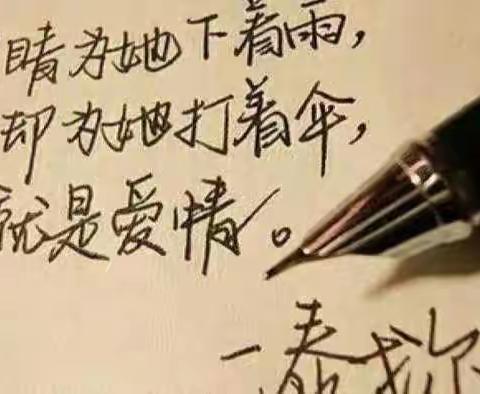 睛为她下着雨，
却为她打着伞，
就是爱情。
一泰戈尔